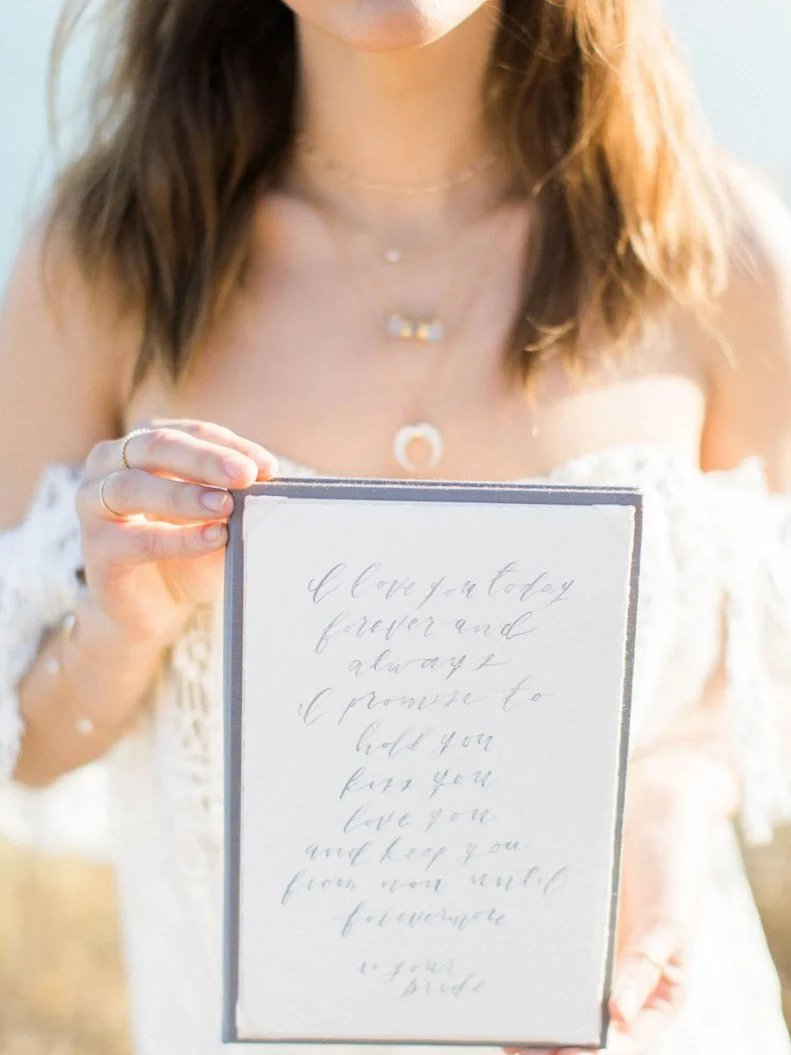 I love you today
forever and
always
I promise to
hold you
kiss you
love you
and keep you
from now until
forevermore
your
bride